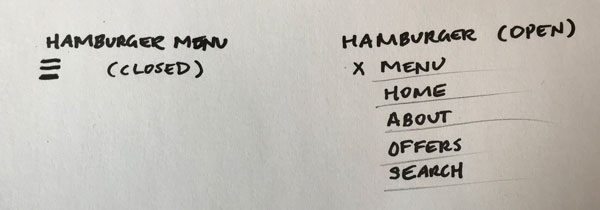 HAMBURGER MENU
(CLOSED)
HAMBURGER (OPEN)
X MENU
HOME
ABOUT
OFFERS
SEARCH